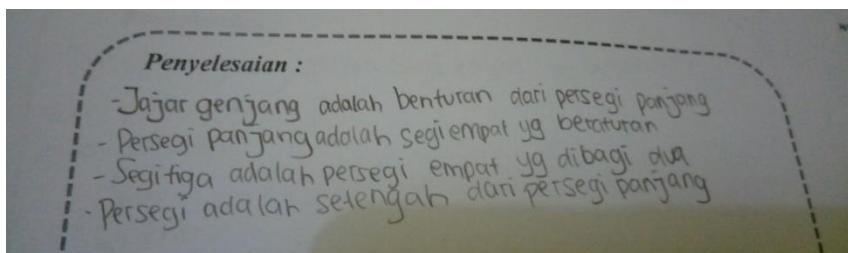 Penyelesaian :
-Jajar genjang adalah benturan dari persegi panjang
- Persegi panjang adalah segiempat yg beraturan
- Segitiga adalah persegi empat yg dibagi dua
- Persegi adalah setengah dari persegi panjang